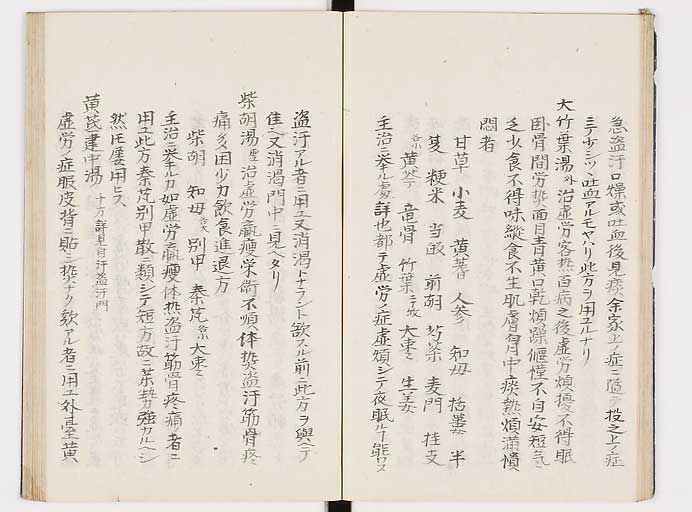 急盗汗口燥或吐血後見痰人余家上ノ症ニ随テ投之上ノ症
ミテ少シツヽ吐血アルモヤハリ此方ヲ用ユルナリ
大竹葉湯 外 治虚労客熱百病之後虚労煩擾不得眠
臥骨間労熱面目青黄口乾煩躁偃慬不自安短気
乏少食不得味縦食不生肌膚胸中痰熱煩満憒
悶者
甘草 小麦 黄蓍 人参 知母 括蔞 半
夏 粳米 当皈 前胡 芍薬 麦門 桂支
黄芩 竜骨 竹葉 大棗 生姜
主治ニ挙ル処詳也都テ虚労ノ症虚煩シテ夜眠ル不能ニ
盗汗アル者ニ用ユ又消渇トナラント欲スル前ニ此方ヲ與ヘテ
佳シ又消渇門中ニ見ヘタリ
柴胡湯 治虚労羸痩栄衛不順体熱盗汗筋骨疼
痛多困少力飲食進退方
柴胡 知母 別甲 秦芁 大棗
主治ニ挙ル如虚労羸痩体熱盗汗筋骨疼痛ノ者ニ
用ユ此方秦芁別甲散ニ類シテ短方故ニ薬勢強カルヘシ
然圧屡用ヒス
黄芪建中湯 千方詳見自汗盗汗門
虚労ノ症腹皮背ニ貼シ熱ナク欬アル者ニ用ユ外甚至黄